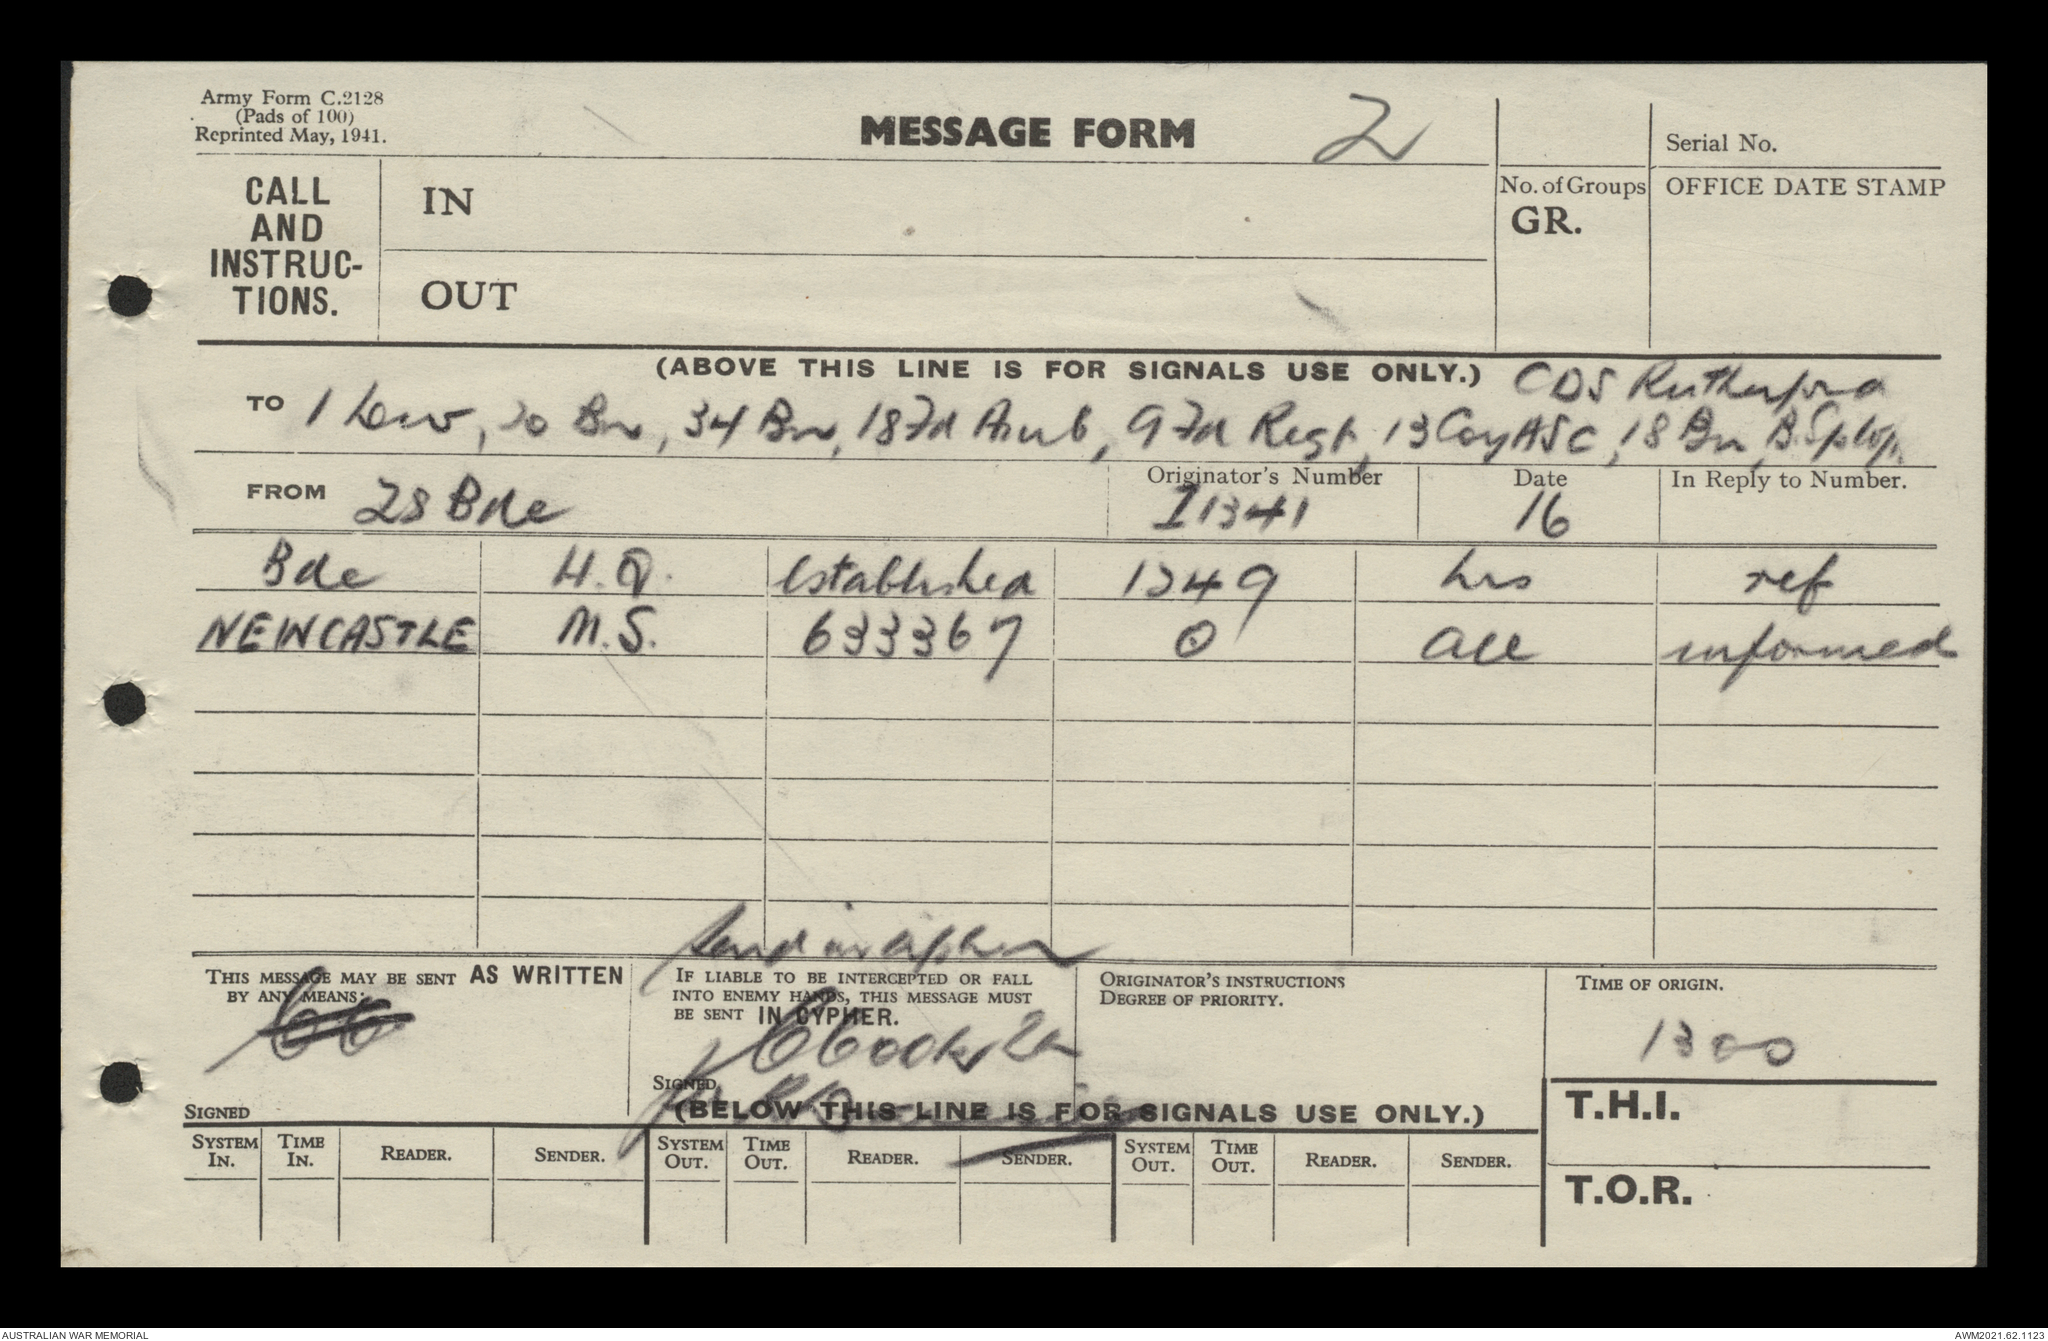 Army Form C.2128
(Pads of 100)
Reprinted May, 1941.
MESSAGE FORM
2
Serial No.
CALL
AND
INSTRUC-
TIONS.
IN
OUT
No. of Groups
GR.
OFFICE DATE STAMP
(ABOVE THIS LINE IS FOR SIGNALS USE ONLY.)
CDS Rutherford
TO 1 Div, 20 Bn, 34 Bn, 18 Fd Amb, 9 Fd Regt, 13 Coy ASC, 18 Bn,
FROM 28 Bde
Originator's Number
I 1341
Date
16
In Reply to Number.
Bde H.Q. established 1249 hrs ref
NEWCASTLE M.S. 633367 O all informed
send in cipher
THIS MESSAGE MAY BE SENT AS WRITTEN
BY ANY MEANS:
SIGNED
IF LIABLE TO BE INTERCEPTED OR FALL
INTO ENEMY HANDS, THIS MESSAGE MUST
BE SENT IN CYPHER.
SIGNED
ORIGINATOR'S INSTRUCTIONS
DEGREE OF PRIORITY.
TIME OF ORIGIN.
1300
(BELOW THIS LINE IS FOR SIGNALS USE ONLY.)
T.H.I.
SYSTEM IN. TIME IN. READER. SENDER. SYSTEM OUT. TIME OUT. READER. SENDER. SYSTEM OUT. TIME OUT. READER. SENDER.
T.O.R.
AUSTRALIAN WAR MEMORIAL
AWM2021.62.1123